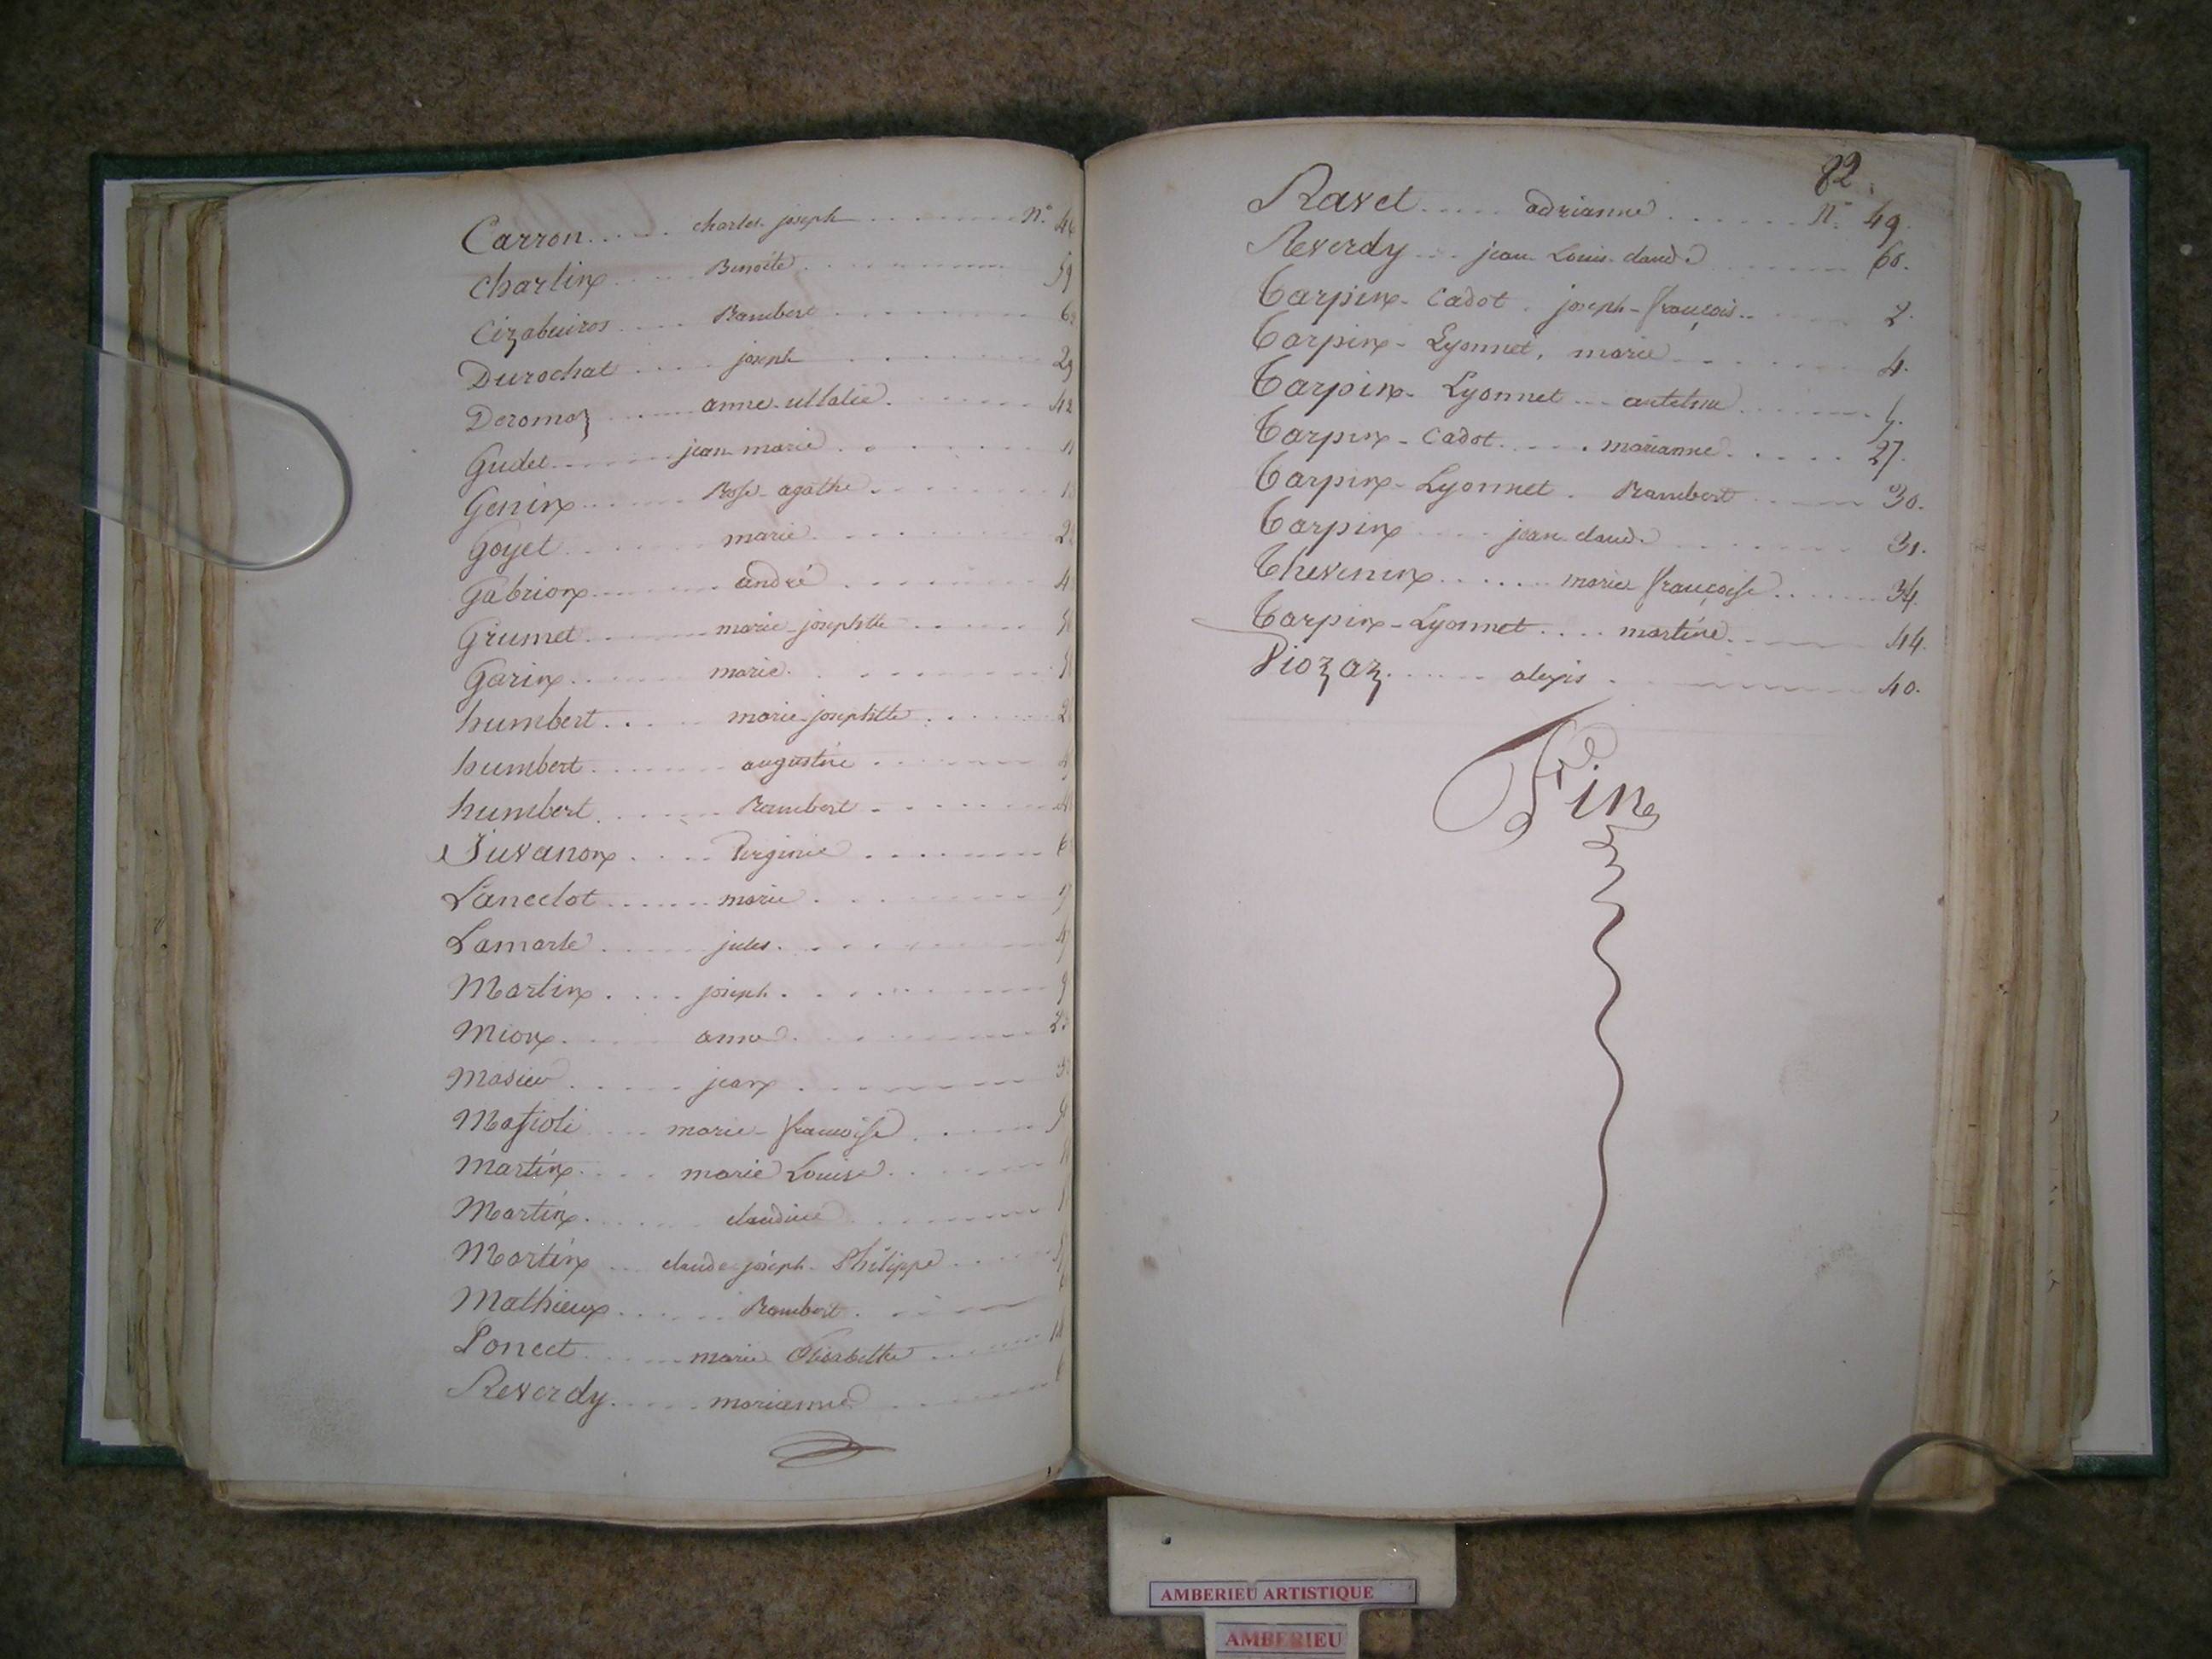 Carron charles joseph n.° 46
Charlin Benoite 59
Cizabuiros Rambert
Durochat joseph 29
Deromaz anne ullalie 42
Gudet jean marie
Genin Rose agathe
Goyet marie
Gabrion andré
Grumet marie josephtte
Garin marie
humbert marie josephtte
humbert augustine
humbert Rambert
Juvanon Virginie
Lancelot marie
Lamarle jules
Martin joseph 9
Mion anne
Masieu jean
Massoli marie françoise
Martin marie Louise
Martin claudine
Martin claude joseph Philippe
Mathieux Rambert
Poncet marie
Reverdy marianne
82
Ravet adrianne N.° 49.
Reverdy jean Louis claude 60.
Tarpin Cadot joseph françois 2.
Tarpin Lyonnet, marie 4.
Tarpin Lyonnet
Tarpin Cadot marianne 27.
Tarpin Lyonnet Rambert 30.
Tarpin jean claude 31.
Thevenin marie françoise 34.
Tarpin Lyonnet martine 44.
Viozaz alexis 40.
Fin
AMBERIEU ARTISTIQUE
AMBERIEU